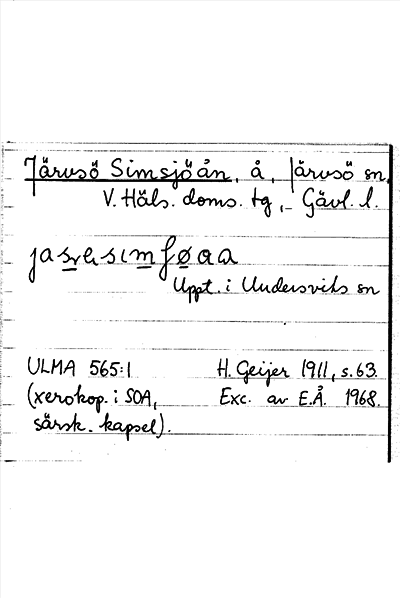 Järvsö Simsjöån, å, Järvsö sn,
V. Häls. doms. tg, Gävl. l.
Uppt. i Undersviks sn
ULMA 565:1 H. Geijer 1911, s. 63.
(xerokop. i SOA, Exc. av E.Å. 1968.
särsk. kapsel).